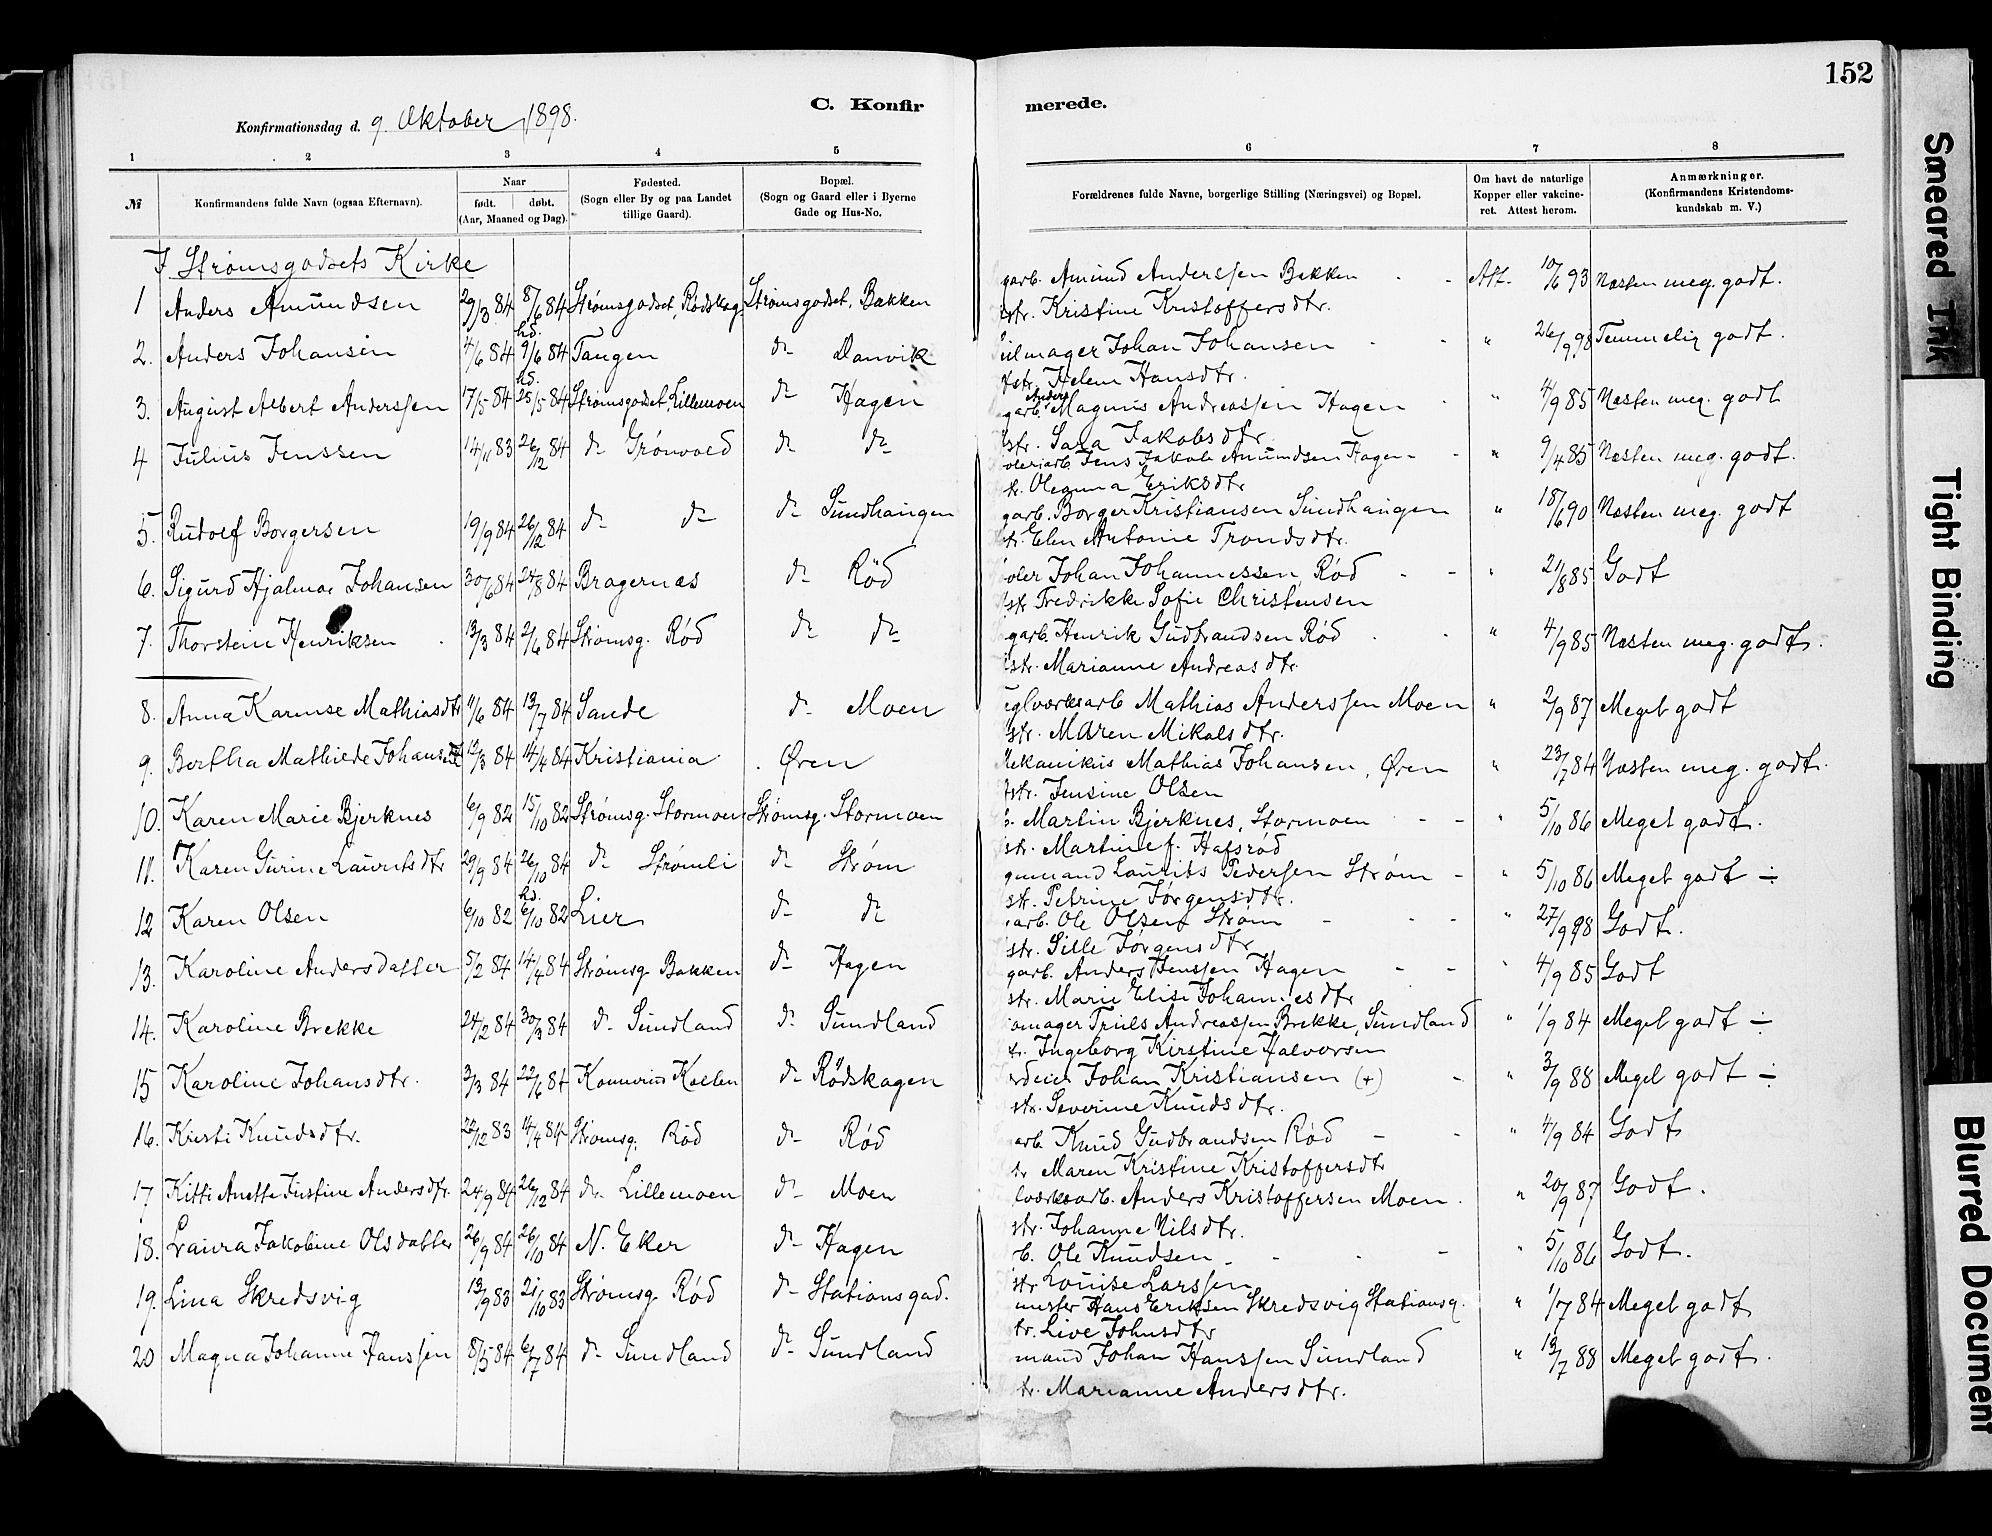 152
C. Konfirmerede.
Konfirmationsdag d. 9. Oktober 1898.
1 2 3 4 5 6 7 8
№
Konfirmandens fulde Navn (ogsaa Efternavn).
Naar
født. døbt.
(Aar, Maaned og Dag).
Fødested.
(Sogn eller By og paa Landet
tillige Gaard).
Bopæl.
(Sogn og Gaard eller i Byerne
Gade og Hus-No.
Forældrenes fulde Navne, borgerlige Stilling (Næringsvei) og Bopæl.
Om havt de naturlige
Kopper eller vakcine-
ret. Attest herom.
Anmærkninger.
(Konfirmandens Kristendoms-
kundskab m. V.)
I Strømsgodsets Kirke
1 Anders Amundsen 29/3 84 8/6 84 Strømsgodset, Rødskog Strømsgodset, Bakken garb. Amund Anderssen Bakken - - Att. 10/6 93 Næsten meg. godt.
str. Kristine Kristoffersdtr.
2. Anders Johansen 4/6 84 hd. 9/6 84 Tangen do Danvik Johan Johansen - - " 26/9 98 Temmelig godt.
str. Helene Hansdtr.
3. August Albert Anderssen 17/5 84 hd. 25/5 84 Strømsgodset, Lillemoen do Hagen garb. Anders Magnus Andreassen Hagen - " 4/9 85 Næsten meg. godt
str. Sara Jakobsdtr.
4 Julius Jenssen 14/11 83 26/12 84 do Grønvold do do Jens Jakob Amundsen Hagen - - " 9/4 85 Næsten meg. godt.
tr. Oleanna Eriksdtr
5. Rudolf Borgersen 19/9 84 26/12 84 do do do Sundhaugen garb. Borger Kristiansen Sundhaugen " 18/6 90 Næsten meg. godt
str. Elen Antonie Trondsdtr.
6. Sigurd Hjalmar Johansen 30/6 84 24/8 84 Bragernæs do Rød Johan Johannessen, Rød - - " 21/8 85 Godt
str Fredrikke Sofie Christensen
7. Thorstein Henriksen 13/3 84 2/6 84 Strømsg. Rød do do garb. Henrik Gudbrandsen Rød - - " 4/9 85 Næsten meg. godt.
str. Marianne Andreasdtr.
8. Anna Karense Mathiasdtr 11/6 84 13/7 84 Sande do Moen eglværksarb Mathias Anderssen Moen " 2/9 87 Meget godt
str. Maren Mikalsdtr.
9. Bertha Mathilde Johansen 12/3 84 14/4 84 Kristiania . Øren Mekanikus Mathias Johansen, Øren " 23/7 84 Næsten meg. godt.
str. Jensine Olsen
10. Karen Marie Bjerknes 6/9 82 15/10 82 Strømsg. Stormoen Strømsg. Stormoen Martin Bjerknes, Stormoen - - " 5/10 86 Meget godt.
str. Martine f. Hafsrød
11. Karen Gurine Lauritsdtr 29/9 84 26/10 84 do Strømli do Strøm Laurits Pedersen Strøm - " 5/10 86 Meget godt ÷
str. Petrine Jørgensdtr.
12 Karen Olsen 6/10 82 hd. 6/10 82 Lier do do arb. Ole Olsen Strøm - - - " 27/9 98 Godt.
str. Sille Jørgensdtr
13. Karoline Andersdatter 5/2 84 14/4 84 Strømsg. Bakken do Hagen garb. Anders Jenssen Hagen - - " 4/9 85 Godt
str. Marie Elise Johannesdtr
14. Karoline Brekke 24/2 84 30/3 84 do Sundland do Sundland omager Truls Andreassen Brekke, Sundland " 1/9 84 Meget godt ÷
tr. Ingeborg Kirstine Halvorsen
15 Karoline Johansdtr. 3/3 84 22/6 84 Komnius Kollen do Rødskogen Johan Kristiansen (+) - " 3/9 88 Meget godt ÷
str. Severine Knudsdtr.
16. Kirsti Knudsdtr. 22/12 83 14/4 84 Strømsg. Rød do Rød arb. Knud Gudbrandsen Rød - - " 4/9 84 Godt
tr Maren Kristine Kristoffersdtr
17 Kitti Anette Justine Andersdtr. 24/9 84 26/12 84 do Lillemoen do Moen lværksarb. Anders Kristoffersen Moen. " 20/9 87 Godt.
str. Johanne Nilsdtr.
18. Laura Jakobine Olsdatter 26/9 84 26/10 84 N. Eker do Hagen b. Ole Knudsen - - - - " 5/10 86 Godt.
str Louise Larssen
19. Lina Skredsvig 13/9 83 21/10 83 Strømsg. Rød do Stationsgad. mester Hans Eriksen Skredsvig Stationsg. " 1/7 84 Meget godt
tr. Live Johnsdtr
20 Magna Johanne Hanssen 8/5 84 6/7 84 do Sundland do Sundland mand Johan Hanssen Sundland " 13/7 88 Meget godt.
tr. Marianne Andersdtr.
Smeared Ink
Tight Binding
Blurred Document